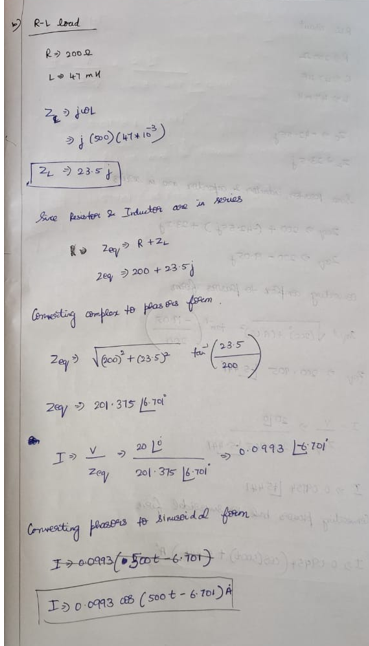 b) R-L load
R ⇒ 200Ω
L ⇒ 47 mH
Z_L ⇒ jωL
⇒ j (500)(47*10^-3)
Z_L ⇒ 23.5 j
Since Resistor & Inductor are in series
Zeq ⇒ R + Z_L
Zeq ⇒ 200 + 23.5j
Converting complex to phasors form.
Zeq ⇒ √(200)² + (23.5)² tan⁻¹ (23.5/200)
Zeq ⇒ 201.375 ∠6.701°
I ⇒ V/Zeq ⇒ 20∠0°/201.375 ∠6.701° ⇒ 0.0993 ∠-6.701°
Converting phasors to sinusoidal form
I ⇒ 0.0993 (500t - 6.701)
I ⇒ 0.0993 cos (500t - 6.701) A